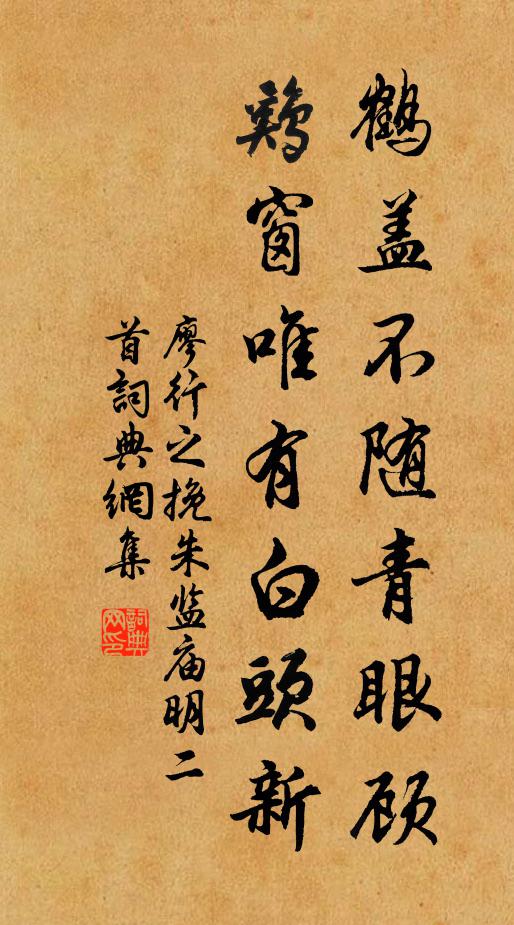 鶴盖不随青眼顾
鷄窗唯有白頭新
廖行之挽朱监庙明二
首詞典網集
詞典
网印